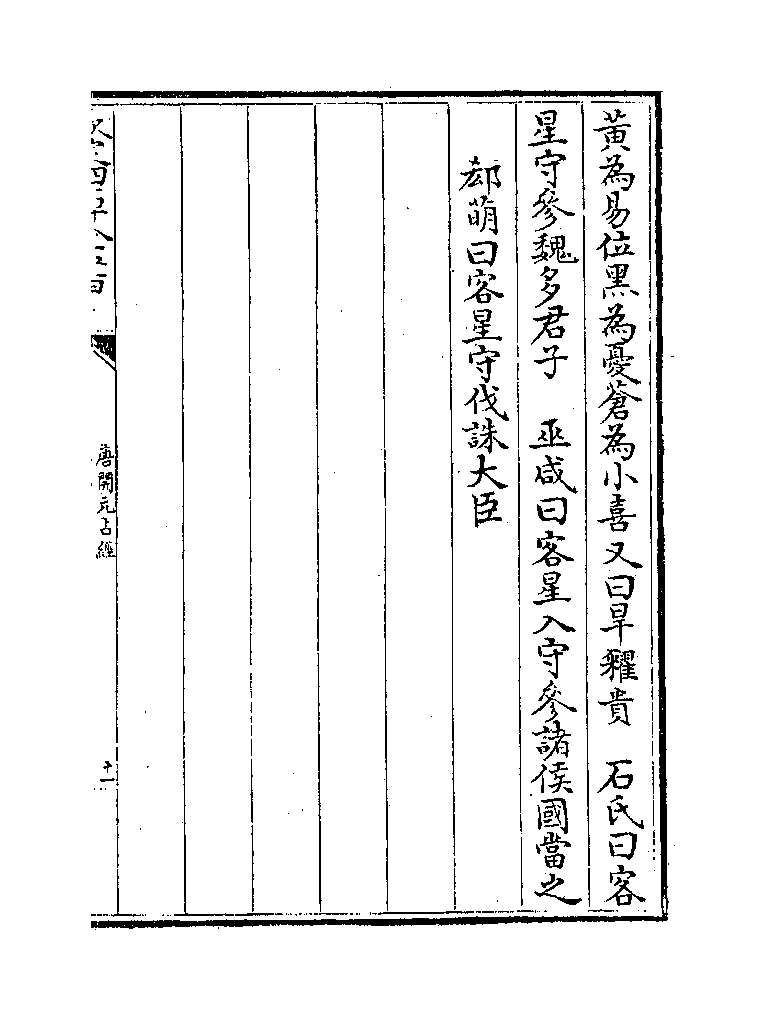 黃為易位黒為憂蒼為小喜又曰旱糴貴　石氏曰客
星守參魏多君子　巫咸曰客星入守參諸侯國當之
郄萌曰客星守伐誅大臣
唐開元占經
十一